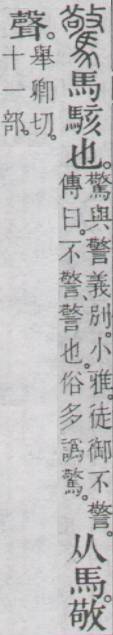 驚馬駭也。驚與警義別。小雅。徒御不警。
傳曰。不警、警也。俗多譌驚。从馬。敬
聲。舉卿切。
十一部。